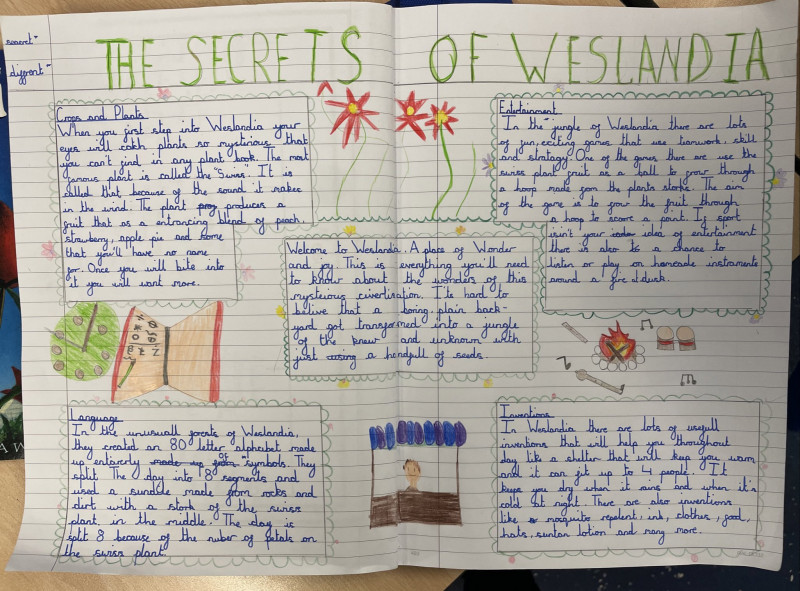 secret
diffrent
THE SECRETS OF WESLANDIA
Crops and Plants
When you first step into Weslandia your
eyes will cath plants so mysterious that
you can't find in any plant book. The most
famous plant is called the "Swiss". It is
called that because of the sound it makes
in the wind. The plant produces a
fruit that as a entrancing blend of peach,
strawberry, apple pie and some
that you'll have no name
for. Once you will bite into
it you will want more.
Welcome to Weslandia. A place of Wonder
and joy. This is everything you'll need
to know about the wonders of this
mysterious civertisation. It's hard to
belive that a boring, plain back-
yard got transformed into a jungle
of the knew and unknown with
just a handfull of seeds.
Entertainment
In the jungle of Weslandia there are lots
of fun, exciting games that use teamwork, skill
and stratagy. One of the games there are use the
swiss plant fruit as a ball to throw through
a hoop made from the plants storke. The aim
of the game is to throw the fruit through
a hoop to score a point. If sport
isin't your idea of entertainment
there is also a chance to
listen or play on homeade instraments
around a fire at dusk.
Language
In the unusuall forests of Weslandia,
they created an 80 letter alphabet made
up entirerly made up of symbols. They
split The day into 8 segments and
used a sundile made from rocks and
dirt with a stork of the swiss
plant in the middle. The day is
split 8 because of the nuber of petals on
the swiss plant
Inventions
In Weslandia there are lots of usefull
inventions that will help you throughout
day like a shelter that will keep you warm
and it can fit up to 4 people. It
keeps you dry when it rains and when it's
cold at night. There are also inventions
like mosquito repelent, ink, clothes, food,
hats, suntan lotion and many more.